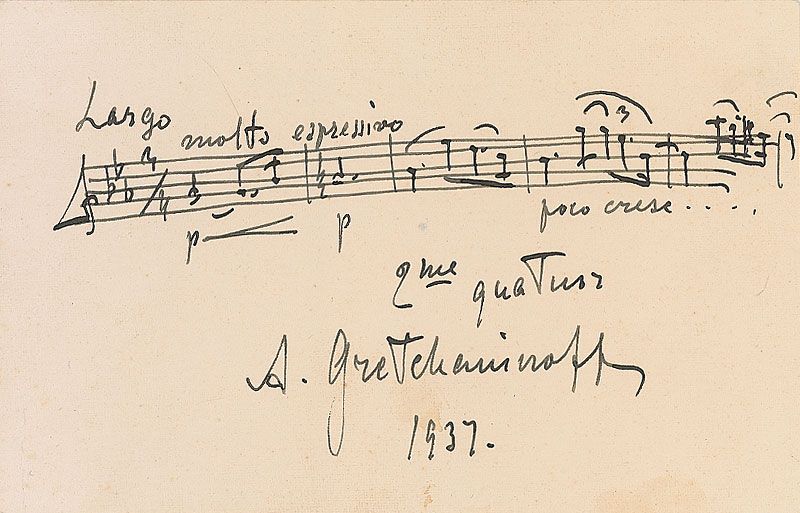 Largo molto espressivo
3/4
3
p p poco cresc....
2me quatuor
A. Gretchaninoff
1937.